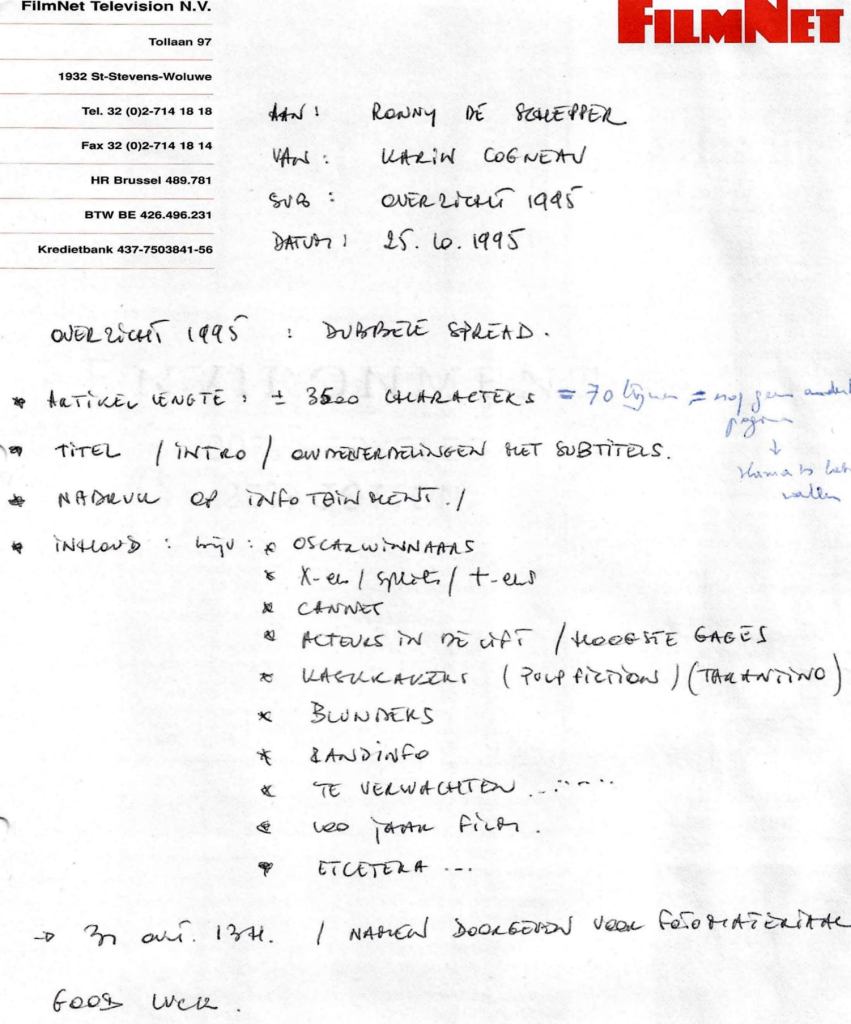 FilmNet Television N.V.
FILMNET
Tollaan 97
1932 St-Stevens-Woluwe
Tel. 32 (0)2-714 18 18
Fax 32 (0)2-714 18 14
HR Brussel 489.781
BTW BE 426.496.231
Kredietbank 437-7503841-56
AAN : RONNY DE SCHEPPER
VAN : KARIN COGNEAU
SUB : OVERZICHT 1995
DATUM : 25.10.1995
OVERZICHT 1995 : DUBBELE SPREAD.
* ARTIKEL LENGTE : ± 3500 CHARACTERS = 70 lijnen = nog geen andere
pagina
↓
* TITEL / INTRO / ONDERVERDELINGEN MET SUBTITELS.
* NADRUK OP INFOTAINMENT. /
* INHOUD : bijv : * OSCARWINNAARS
* X-en / / t-ers
* CANNES
* ACTEURS IN DE LIFT / HOOGSTE GAGES
* KASKRAKERS (PULP FICTION) (TARANTINO)
* BLUNDERS
* RANDINFO
* TE VERWACHTEN .......
* 100 JAAR FILM.
* ETCETERA ...
→ 30 okt. 13H. / NAMEN DOORGEVEN VOOR FOTOMATERIAAL
GOOD LUCK.